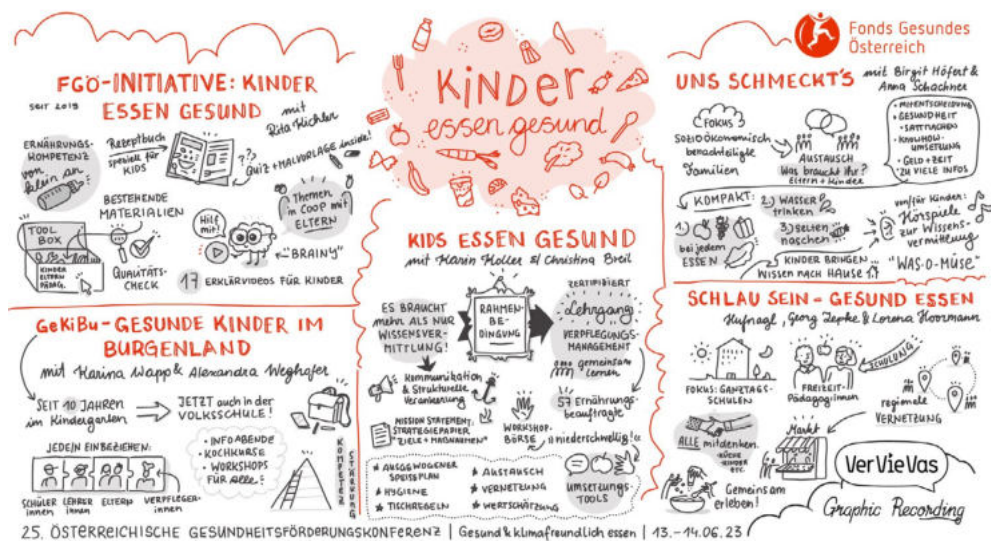 FGÖ-INITIATIVE: KINDER
ESSEN GESUND
SEIT 2019
mit
Rita Kichler
ERNÄHRUNGS-
KOMPETENZ
von
klein an
Rezeptbuch
speziell für
KIDS
??
Quiz + MALVORLAGE inside!
BESTEHENDE
MATERIALIEN
TOOL
BOX
KINDER
ELTERN
PÄDAG.
QUALITÄTS-
CHECK
Hilf
mit!
"BRAINY"
Themen
in COOP mit
ELTERN
17 ERKLÄRVIDEOS FÜR KINDER
GeKiBu-GESUNDE KINDER IM
BURGENLAND
mit Karina Wapp & Alexandra Weghofer
SEIT 10 JAHREN
im Kindergarten
JETZT auch in der
VOLKSSCHULE!
JEDE/N EINBEZIEHEN:
SCHÜLER
innen
LEHRER
innen
ELTERN
VERPFLEGER-
innen
• INFOABENDE
• KOCHKURSE
• WORKSHOPS
FÜR alle!
KOMPETENZ
STÄRKUNG
KiNDER
essen gesund
KIDS ESSEN GESUND
mit Karin Koller & Christina Breil
ES BRAUCHT
mehr ALS NUR
WISSENSVER-
MITTLUNG!
RAHMEN-
BE-
DINGUNG
ZERTIFIZIERT
Lehrgang
VERPFLEGUNGS-
MANAGEMENT
gemeinsam
lernen
Kommunikation
& Strukturelle
Verankerung
57 Ernährungs-
beauftragte
MISSION STATEMENT:
STRATEGIEPAPIER
"ZIELE + MAßNAHMEN"
WORKSHOP-
BÖRSE
niederschwellig!
* AUSGEWOGENER
SPEISEPLAN
* HYGIENE
* TISCHREGELN
* AUSTAUSCH
* VERNETZUNG
* WERTSCHÄTZUNG
UMSETZUNGS-
TOOLS
Fonds Gesundes
Österreich
UNS SCHMECKT'S
mit Birgit Höfert &
Anna Schachner
FOKUS
SOZIOÖKONOMISCH
benachteiligte
Familien
AUSTAUSCH
Was braucht ihr?
Eltern + Kinder
• MITENTSCHEIDUNG
• GESUNDHEIT
• SATTMACHEN
• KNOWHOW-
UMSETZUNG
• GELD + ZEIT
• ZU VIELE INFOS
KOMPAKT:
1.)
bei jedem
ESSEN
2.) WASSER
trinken
3.) selten
naschen
KINDER BRINGEN
Wissen nach HAUSE
von/für Kinder:
Hörspiele
zur Wissens-
vermittlung
"WAS-O-MÜSE"
SCHLAU SEIN - GESUND ESSEN
Hufnagl, Georg Zepke & Lorena Hoormann
FOKUS: GANZTAGS-
SCHULEN
FREIZEIT-
PÄDagog:innen
SCHULUNG
regionale
VERNETZUNG
ALLE mitdenken.
KÜCHE
KINDER
ETC.
Markt
food
Gemeinsam
erleben!
VerVieVas
Graphic Recording
25. ÖSTERREICHISCHE GESUNDHEITSFÖRDERUNGSKONFERENZ | Gesund & klimafreundlich essen | 13.-14.06.23